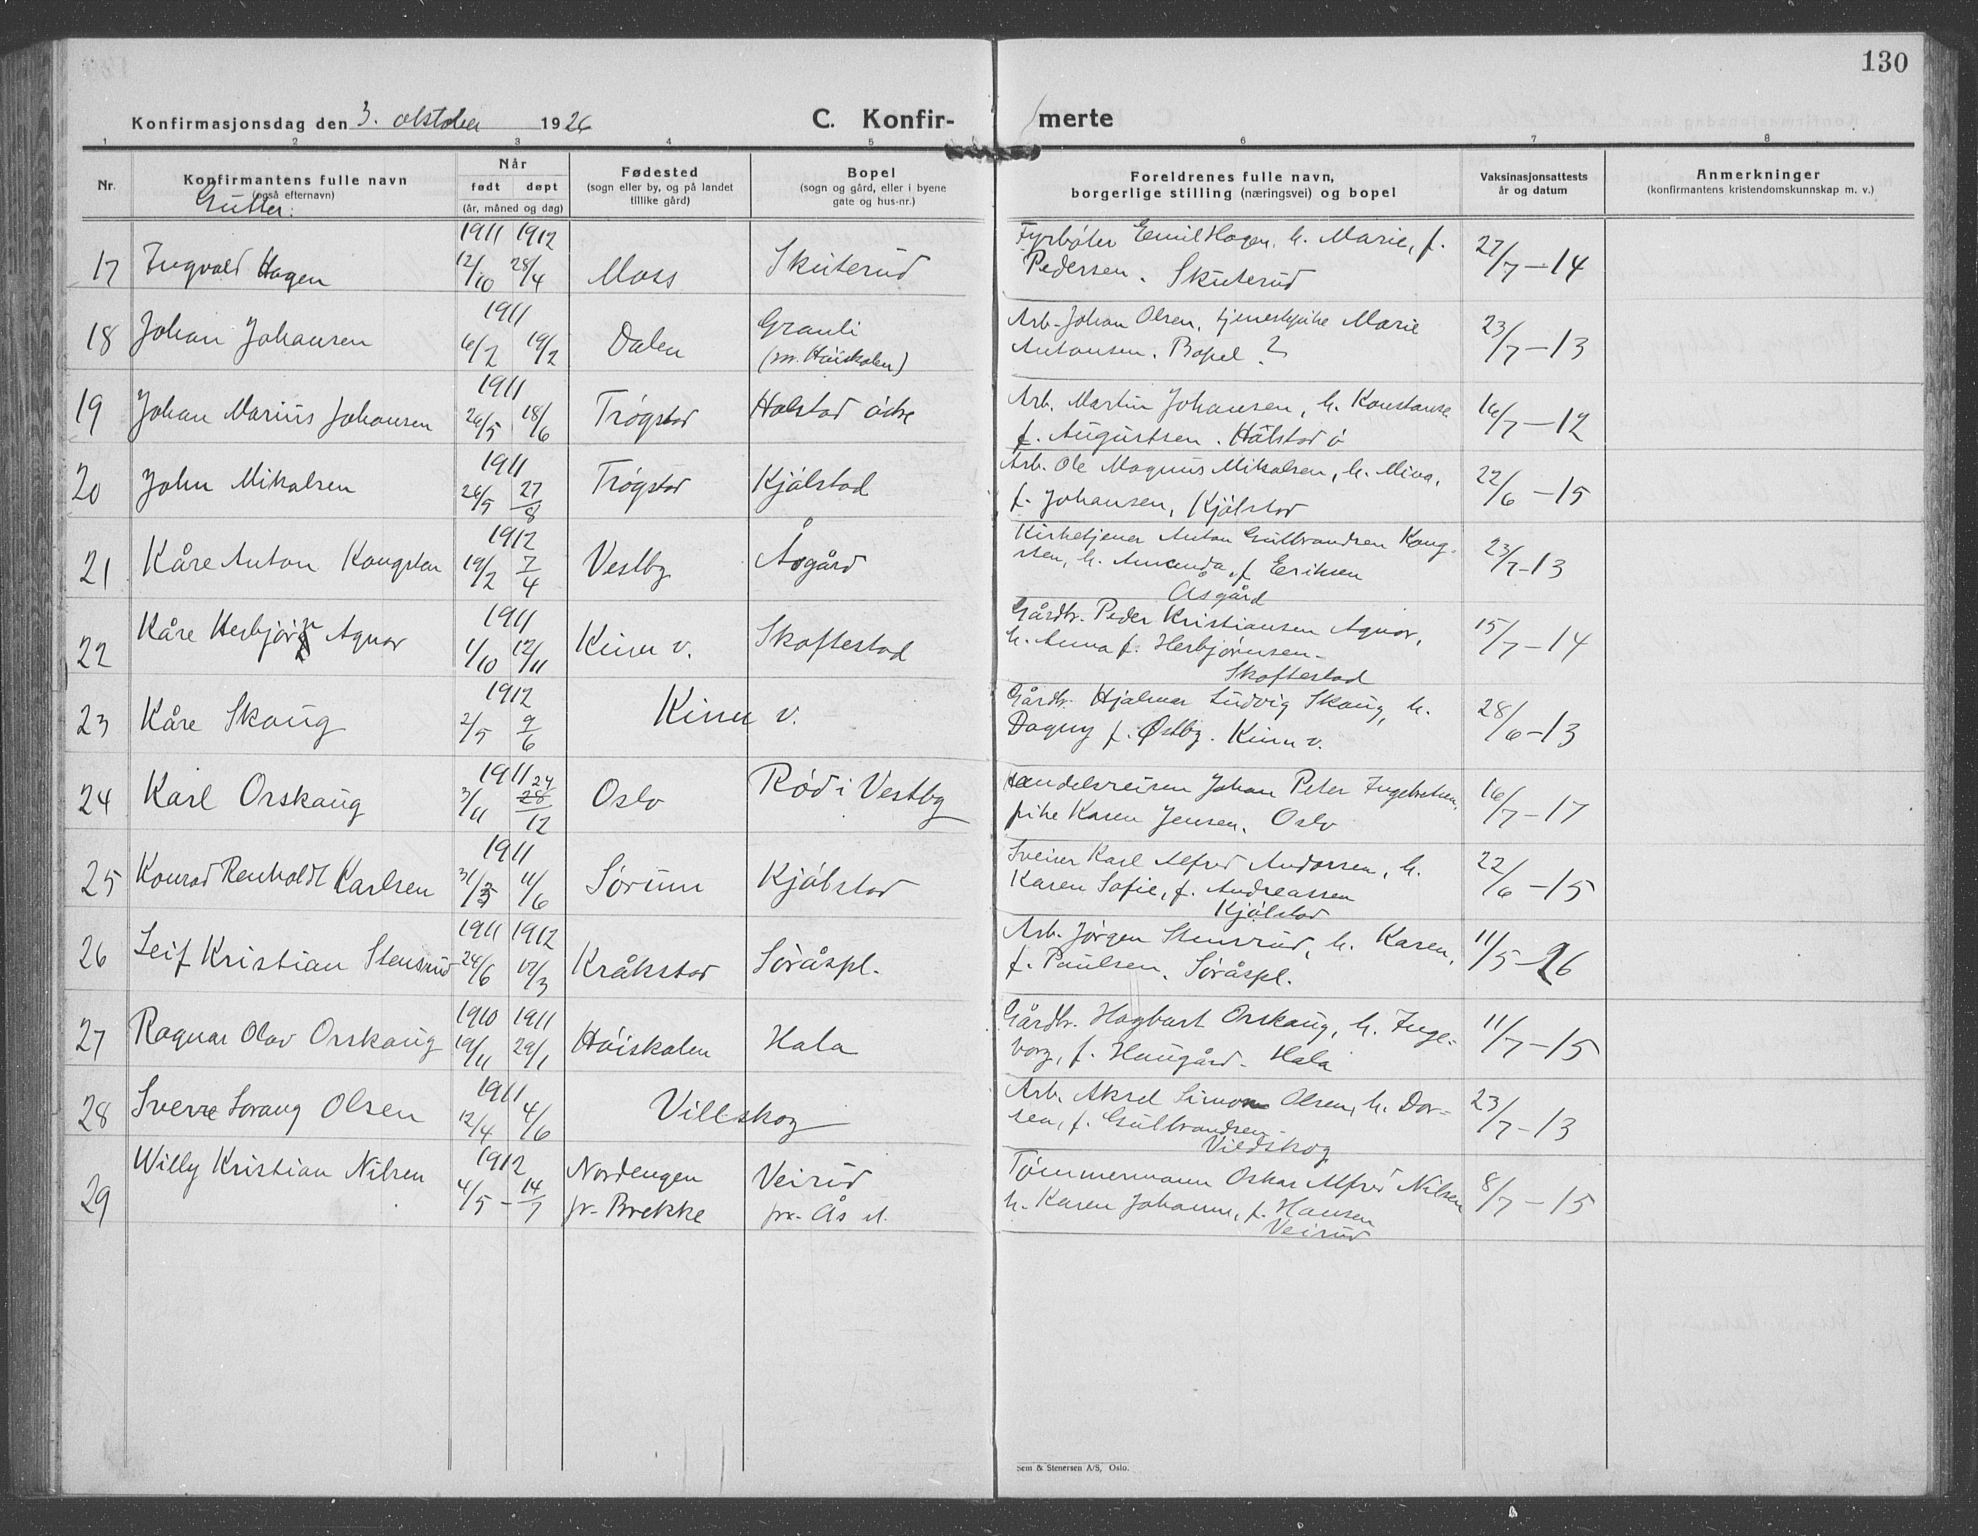 130
Konfirmasjonsdag den 3. oktober 1926
C. Konfir- merte
1 2 3 4 5 6 7 8
Nr.
Konfirmantens fulle navn
(også efternavn)
Gutter:
Når
født døpt
(år, måned og dag)
Fødested
(sogn eller by, og på landet
tillike gård)
Bopel
(sogn og gård, eller i byene
gate og hus-nr.)
Foreldrenes fulle navn,
borgerlige stilling (næringsvei) og bopel
Vaksinasjonsattests
år og datum
Anmerkninger
(konfirmantens kristendomskunnskap m. v.)
17 Ingvald Hagen 1911 12/10 1912 28/4 Moss Skuterud
Fyrbøter Emil Hagen, h. Marie, f.
Pedersen. Skuterud
27/7-14
18 Johan Johansen 1911 6/2 19/2 Dalen Granli
(m. Høiskolen)
Arb. Johan Olsen, tjenestpike Marie
Antonsen. Bopel ?
23/7-13
19 Johan Marius Johansen 1911 26/5 18/6 Trøgstad Holstad østre
Arb. Martin Johansen, h. Konstanse
f. Augustsen. Holstad ø
16/7-12
20 John Mikalsen 1911 26/5 27/8 Trøgstad Kjølstad
Arb. Ole Magnus Mikalsen, h. Mina,
f. Johansen, Kjølstad
22/6-15
21 Kåre Anton Kongsten 1912 19/2 7/4 Vestby Åsgård
Kirketjener Anton Gulbrandsen Kong-
sten, h. Amanda, f. Eriksen
Åsgård
23/7-13
22 Kåre Herbjørn Agnor 1911 1/10 12/11 Kinn v. Skoftestad
Gårdbr. Peder Kristiansen Agnor,
h. Anna f. Herbjørnsen-
Skoftestad
15/7-14
23 Kåre Skaug 1912 2/5 9/6 Kinn v.
Gårdbr. Hjalmar Ludvig Skaug, h.
Dagny f. Østby. Kinn v.
28/6-13
24 Karl Orskaug 1911 3/11 24 28/12 Oslo Rød i Vestby
Handelsreisen Johan Peter Ingebretsen,
pike Karen Jensen. Oslo
16/7-17
25 Konrad Renholdt Karlsen 1911 31/3 11/6 Sørum Kjølstad
Sveiser Karl Alfred Andorsen, h.
Karen Sofie, f. Andreassen
Kjølstad
22/6-15
26 Leif Kristian Stensrud 1911 24/6 1912 17/3 Kråkstad Søråspl.
Arb. Jørgen Stensrud, h. Karen,
f. Paulsen. Søråspl.
11/5-26
27 Ragnar Olav Orskaug 1910 19/11 1911 29/1 Høiskolen Hala
Gårdbr. Hagbart Orskaug, h. Inge-
borg, f. Haugård. Hala
11/7-15
28 Sverre Sorang Olsen 1911 12/4 4/6 Villskog
Arb. Aksel Simon Olsen, h. Dor-
tea, f. Gulbrandsen-
Vildskog
23/7-13
29 Willy Kristian Nilsen 1912 4/5 - 14/7 Nordengen
pr. Brekke Veirud
pr. Ås st.
Tømmermann Oskar Alfred Nilsen
h. Karen Johanne, f. Hansen
Veirud
8/7-15
Sem & Stenersen A/S, Oslo.